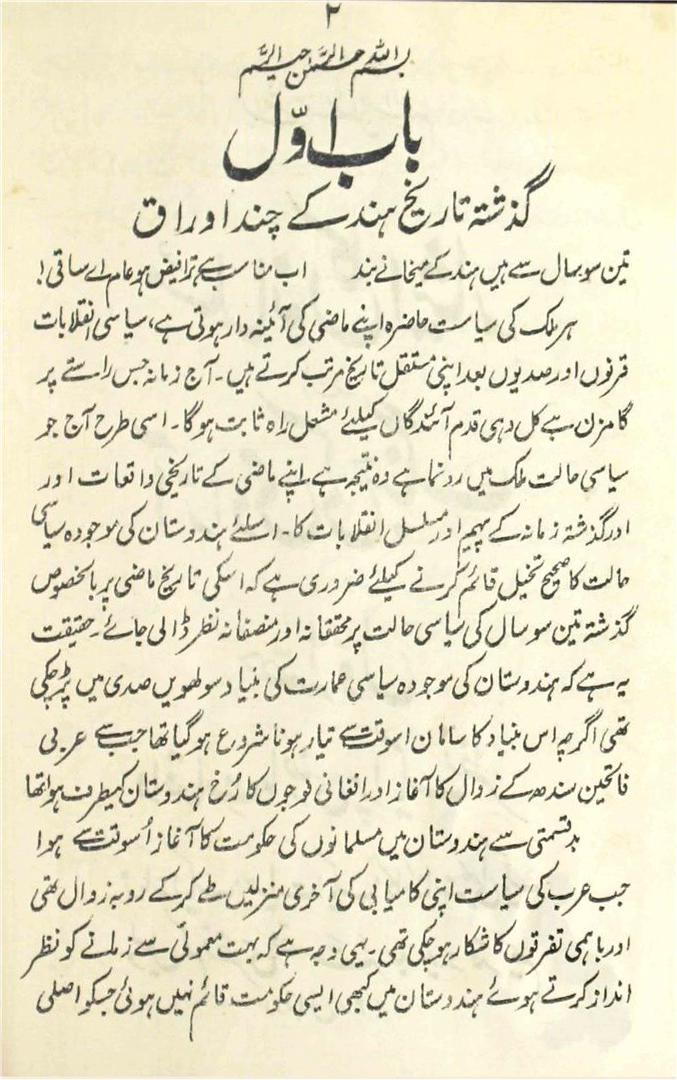 ۲
بسم اللہ الرحمن الرحیم
باب اوّل
گذشتہ تاریخ ہند کے چند اوراق
تین سو سال سے ہیں ہند کے میخانے بند اب مناسب ہے ترا فیض ہو عام اے ساقی!
ہر ملک کی سیاست حاضرہ اپنے ماضی کی آئینہ دار ہوتی ہے، سیاسی انقلابات
قرنوں اور صدیوں بعد اپنی مستقل تاریخ مرتب کرتے ہیں۔ آج زمانہ جس راستے پر
گامزن ہے کل وہی قدم آئندگاں کیلئے مشعل راہ ثابت ہوگا۔ اسی طرح آج جو
سیاسی حالت ملک میں رونما ہے وہ نتیجہ ہے اپنے ماضی کے تاریخی واقعات اور
اور گذشتہ زمانہ کے پیہم اور مسلسل انقلابات کا۔ اسلئے ہندوستان کی موجودہ سیاسی
حالت کا صحیح تخیل قائم کرنے کیلئے ضروری ہے کہ اسکی تاریخ ماضی پر بالخصوص
گذشتہ تین سو سال کی سیاسی حالت پر محققانہ اور منصفانہ نظر ڈالی جائے۔ حقیقت
یہ ہے کہ ہندوستان کی موجودہ سیاسی عمارت کی بنیاد سولھویں صدی میں پڑ چکی
تھی اگرچہ اس بنیاد کا سامان اسوقت سے تیار ہونا شروع ہوگیا تھا جب سے عربی
فاتحین سندھ کے زوال کا آغاز اور افغانی فوجوں کا رُخ ہندوستان کیطرف ہوا تھا
بدقسمتی سے ہندوستان میں مسلمانوں کی حکومت کا آغاز اُسوقت سے ہوا
جب عرب کی سیاست اپنی کامیابی کی آخری منزلیں طے کر کے رو بہ زوال تھی
اور باہمی تفرقوں کا شکار ہوچکی تھی۔ یہی وجہ ہے کہ بہت معمولی سے زمانے کو نظر
انداز کرتے ہوئے ہندوستان میں کبھی ایسی حکومت قائم نہیں ہوئی جسکو اصلی